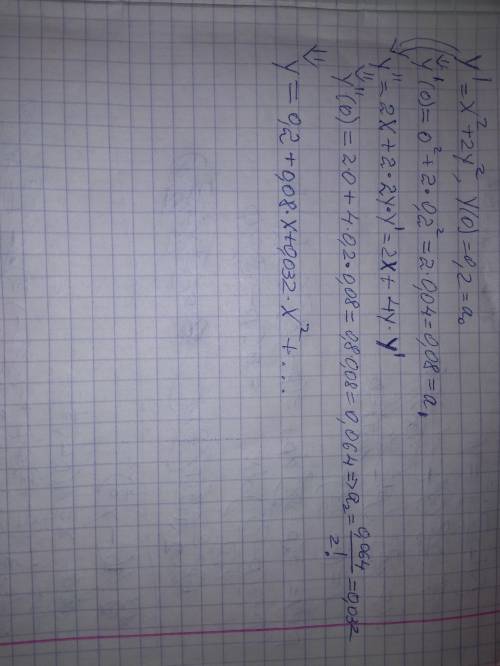 y' = x² + 2y², y(0) = 0,2 = a₀
y'(0) = 0² + 2·0,2² = 2·0,04 = 0,08 = a₁
y'' = 2x + 2·2y·y' = 2x + 4y·y'
y''(0) = 2·0 + 4·0,2·0,08 = 0,8·0,08 = 0,064 ⇒ a₂ = 0,064/2! = 0,032
y = 0,2 + 0,08·x + 0,032·x² + ...